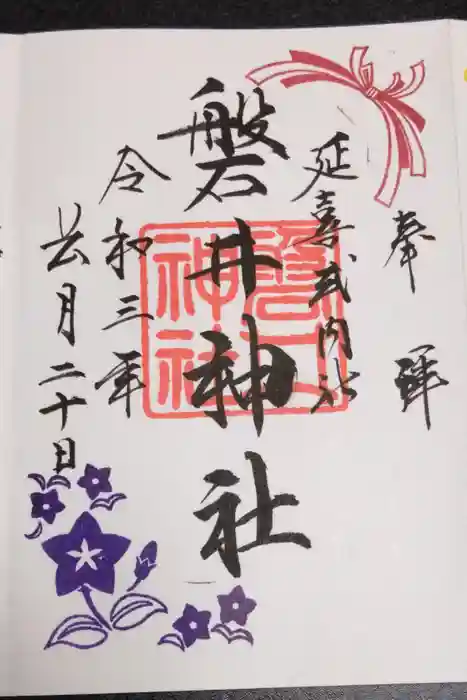 奉拝
延喜式内社
磐井神社
令和三年
月二十日
磐井
神社